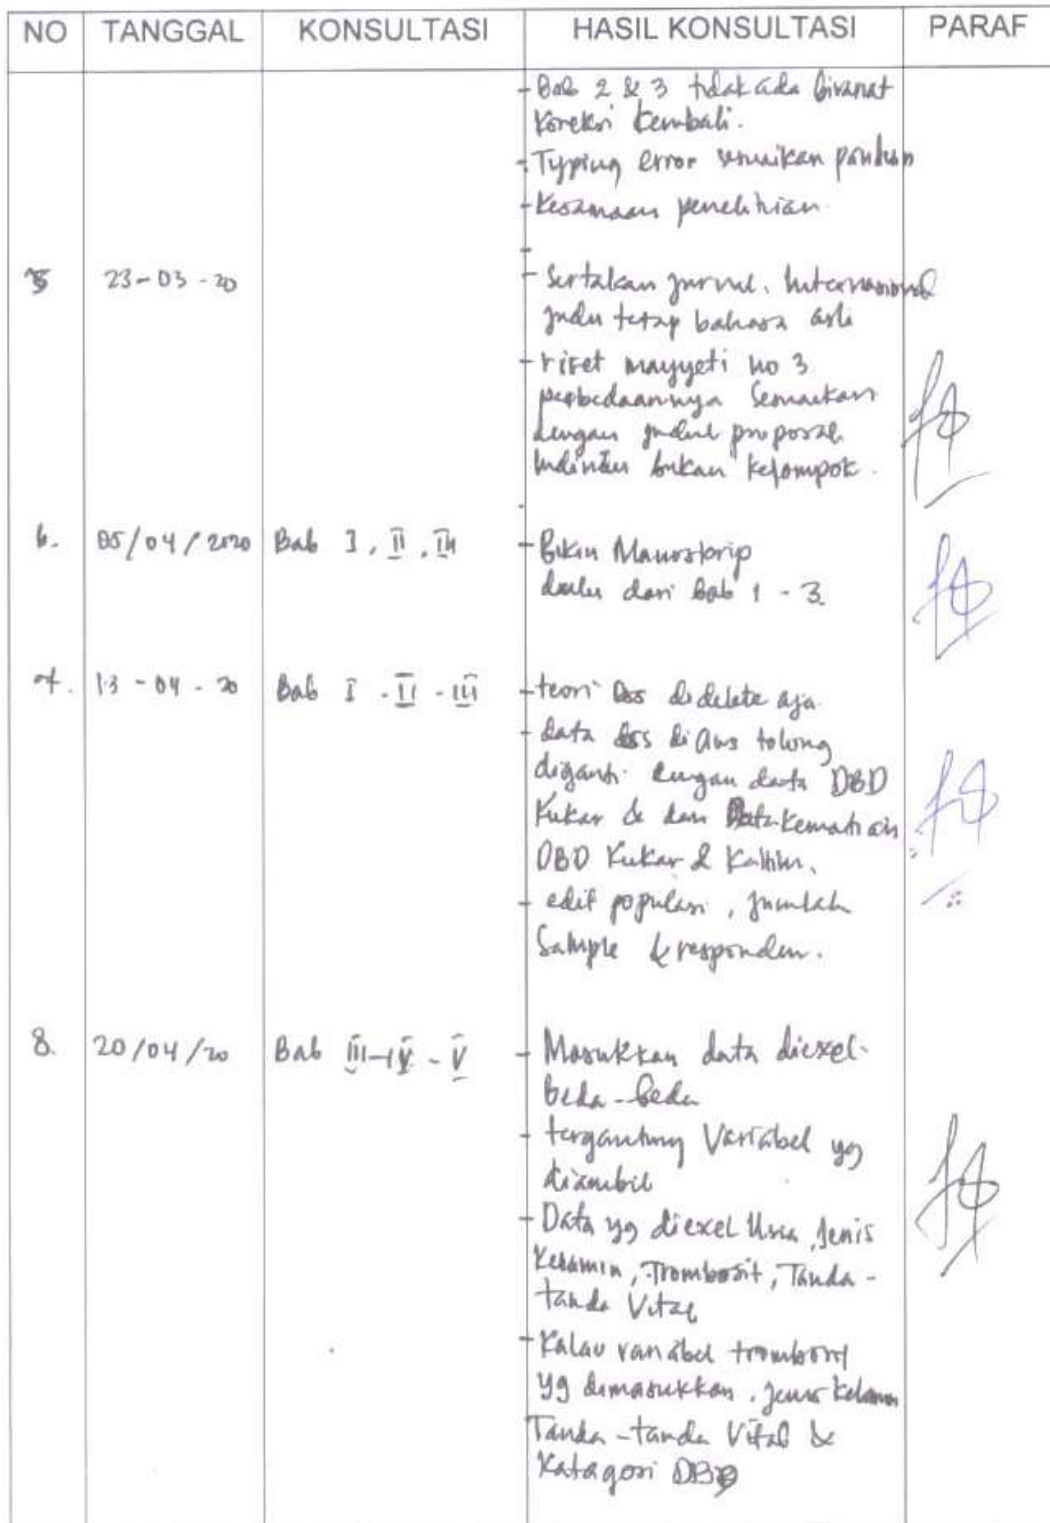 NO TANGGAL KONSULTASI HASIL KONSULTASI PARAF
- Bab 2 & 3 tidak ada
koreksi kembali.
- Typing error
- Kesamaan penelitian
5 23-03-20 - Sertakan jurnal. Internasional
judu tetap bahasa asli
- riset mayyeti no 3
perbedaannya
dengan judul proposal
bukan kelompok.
6. 05/04/2020 Bab I, II, III - Bikin Manuskrip
dulu dari bab 1 - 3
7. 13-04-20 Bab I - II - III - teori dss didelete aja
- data dss di Aws tolong
diganti dengan data DBD
Kukar & dan Data kematian
DBD Kukar & Kaltim,
- edit populasi, jumlah
Sample & responden.
8. 20/04/20 Bab III-IV - V - Masukkan data diexel
beda-beda
- tergantung Variabel yg
diambil
- Data yg diexel Usia, Jenis
Kelamin, Trombosit, Tanda-
tanda Vital
- Kalau variabel trombosit
yg dimasukkan, jenis kelamin
Tanda-tanda Vital &
Katagori DBD